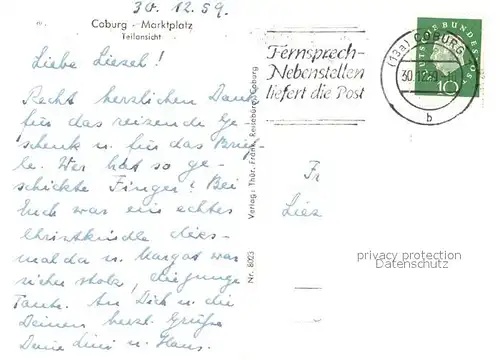 30.12.59.
Coburg - Marktplatz
Teilansicht
Liebe Liesel!
Recht herzlichen Dank
für das reizende Ge-
schenk u. für das Brief-
le. Wer hat so ge-
schickte Finger! Bei
Euch war ein echtes
Christkindle dies-
mal da u. Margot war
sicher stolz, die junge
Tante. An Dich u. die
Deinen herzl. Grüße
Deine u. Hans.
Verlag: Thür. Fränk. Reisebüro, Coburg
Nr. 8023
Fernsprech-
Nebenstellen
liefert die Post
(13a) COBURG 1
30.12.59
b
DEUTSCHE BUNDESPOST
10
Fr
Lies
privacy protection
Datenschutz